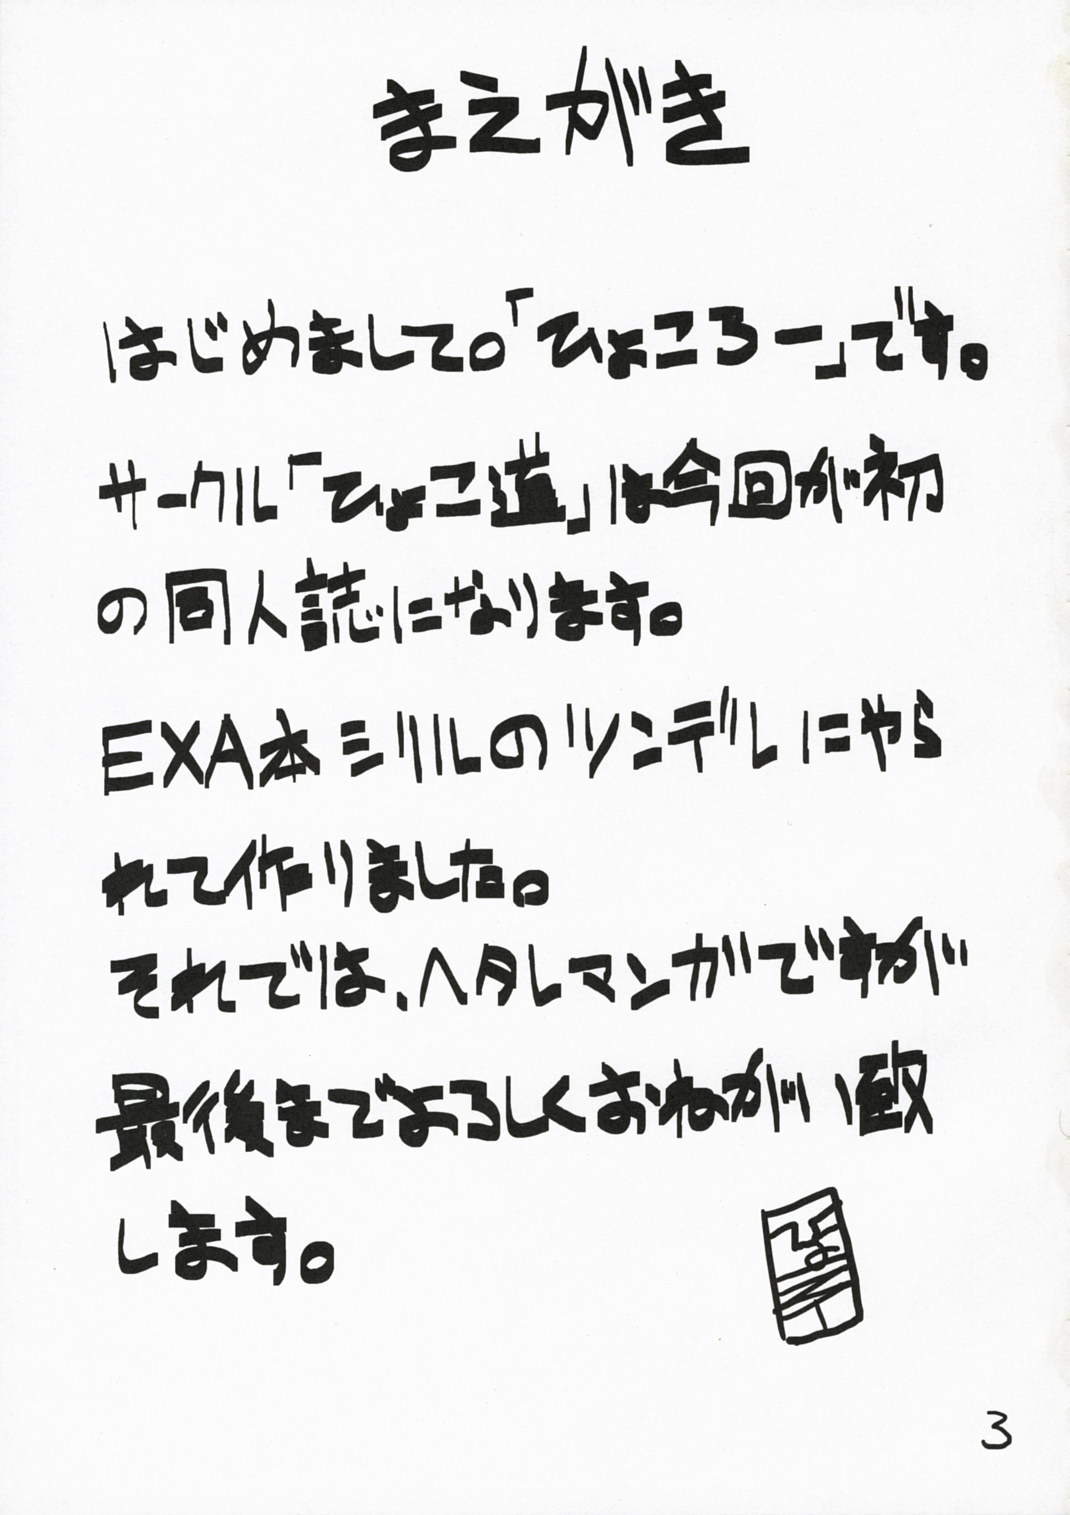 まえがき
はじめまして。「ひょころー」です。
サークル「ひょこ道」は今回が初
の同人誌になります。
EXA本ミリルのツンデレにやら
れて作りました。
それでは、ヘタレマンガですが
最後までよろしくおねがい致
します。
3